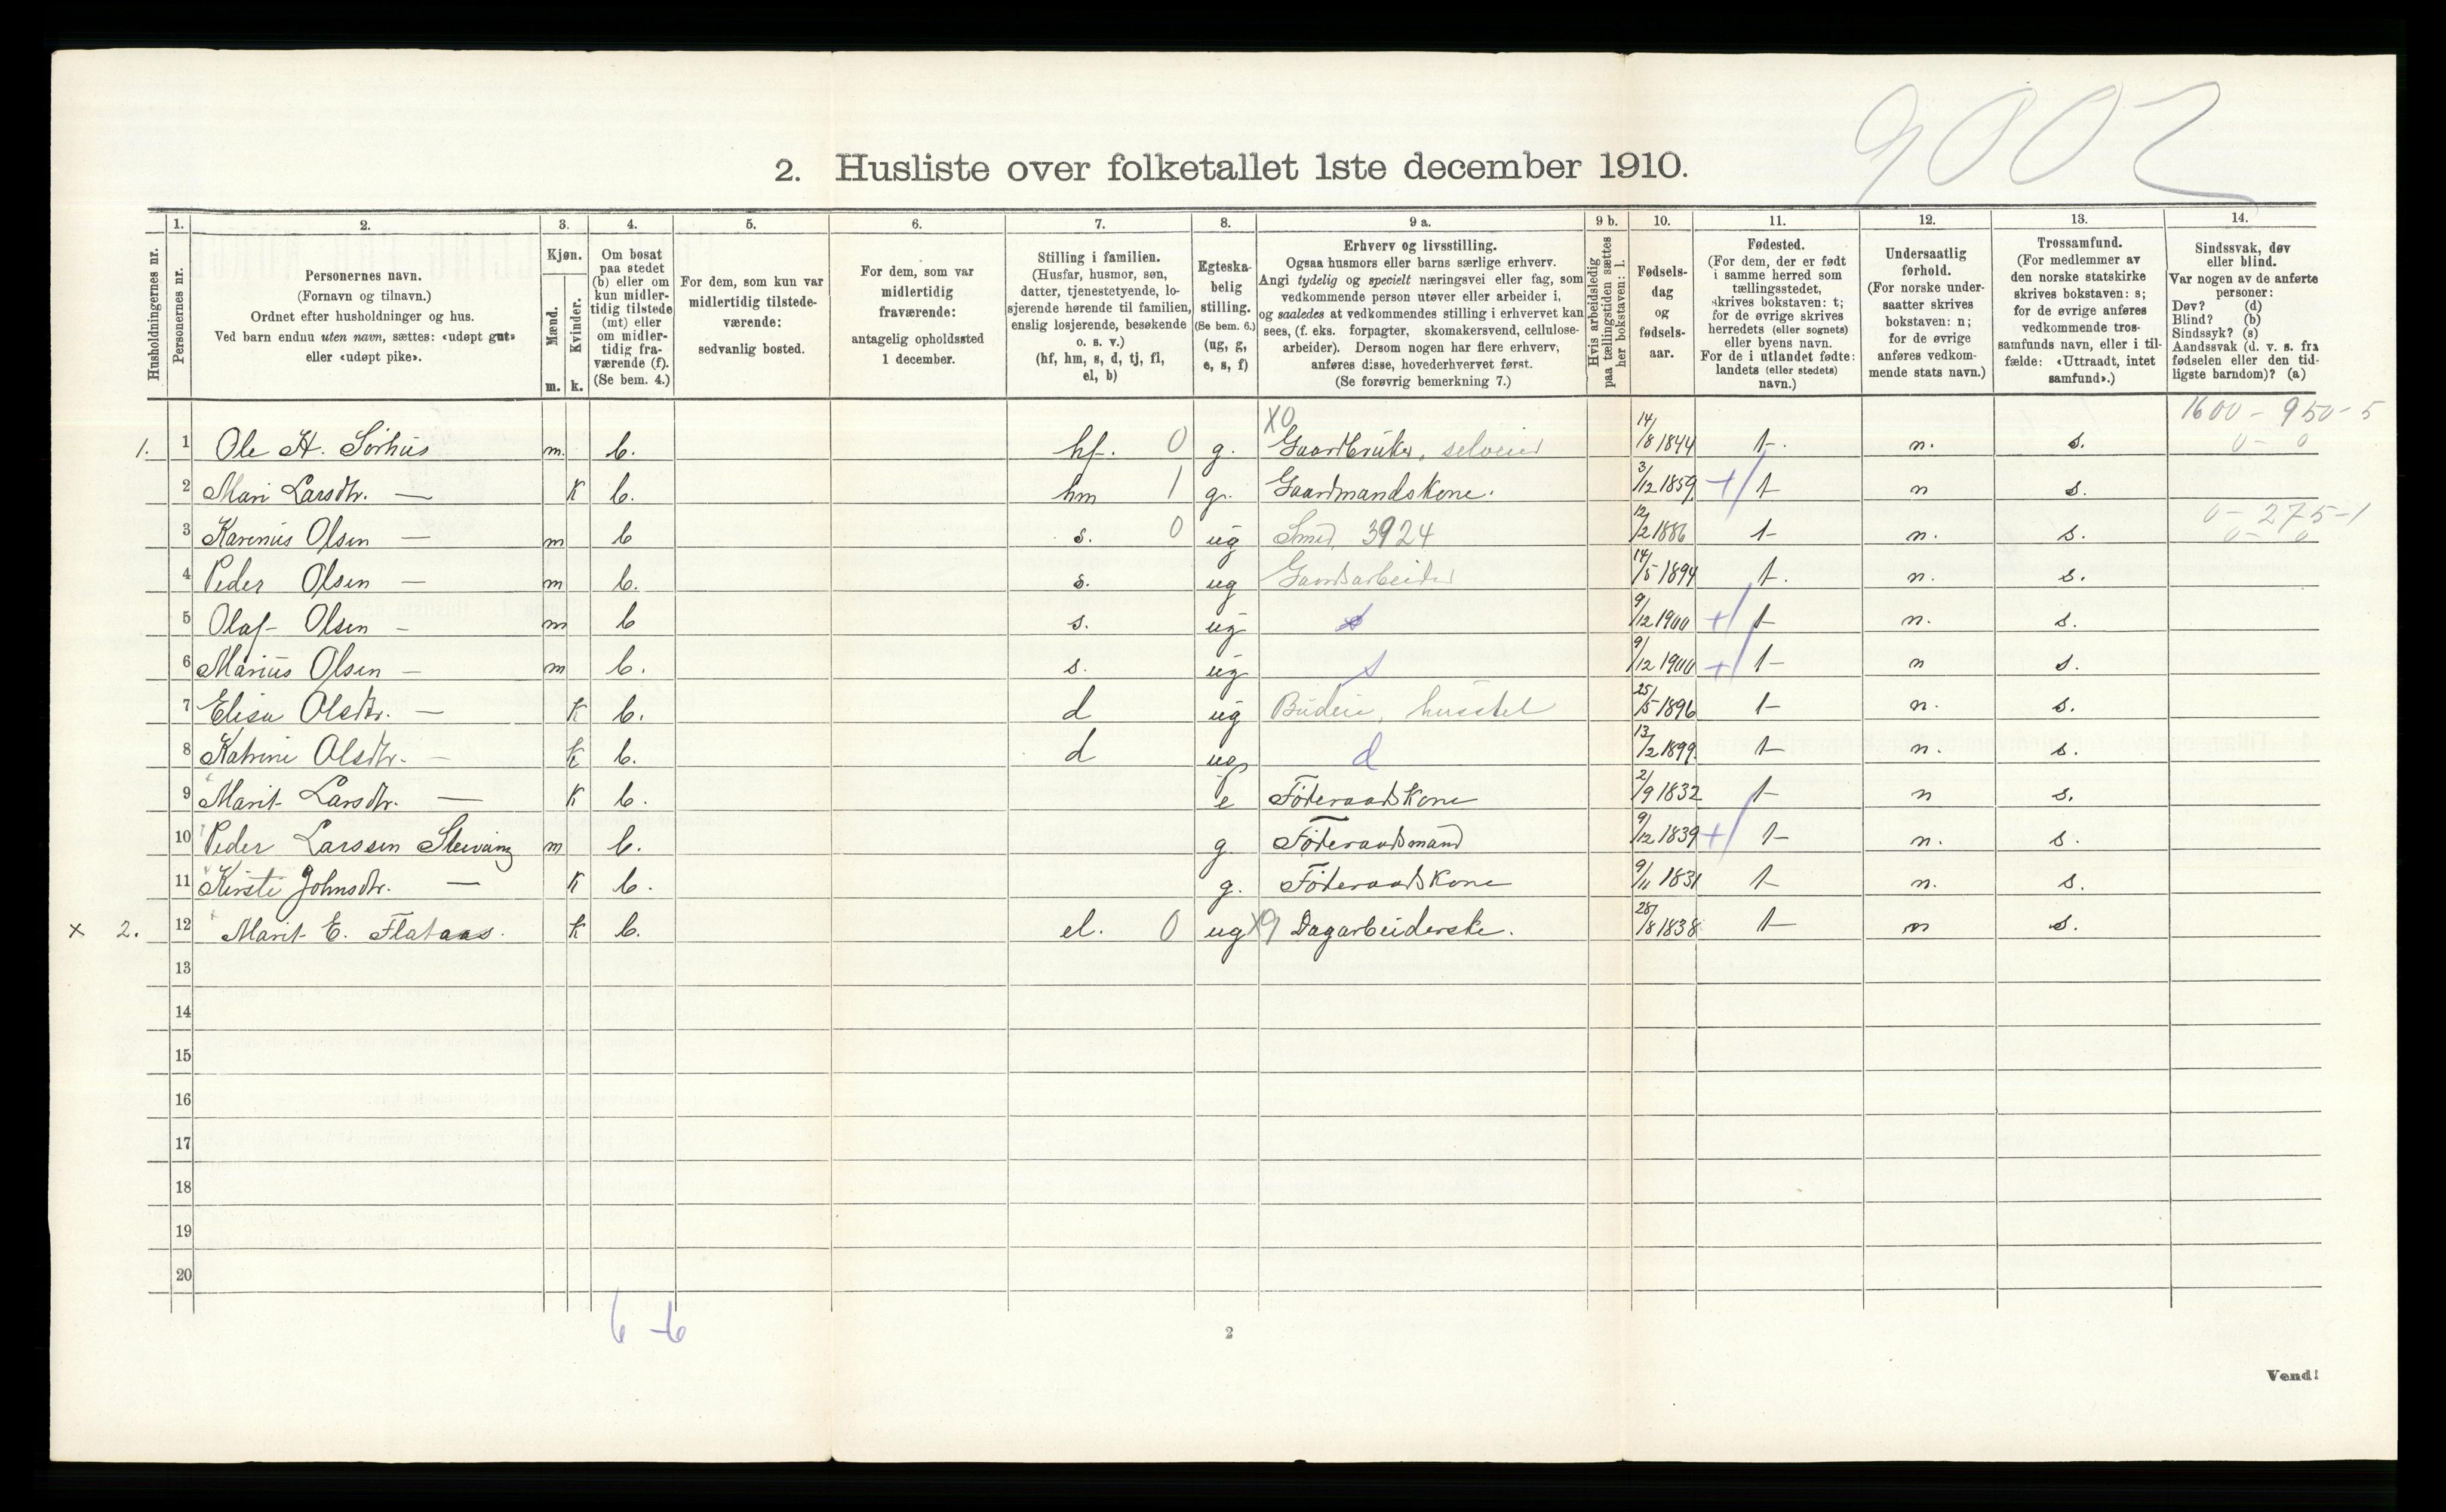 9002
2. Husliste over folketallet 1ste december 1910.
Husholdningernes nr.
1. Personernes nr.
2. Personernes navn. (Fornavn og tilnavn.) Ordnet efter husholdninger og hus. Ved barn endnu uten navn, sættes: «udøpt gut» eller «udøpt pike».
3. Kjøn. Mænd. m. Kvinder. k.
4. Om bosat paa stedet (b) eller om kun midlertidig tilstede (mt) eller om midlertidig fraværende (f). (Se bem. 4.)
5. For dem, som kun var midlertidig tilstedeværende: sedvanlig bosted.
6. For dem, som var midlertidig fraværende: antagelig opholdssted 1 december.
7. Stilling i familien. (Husfar, husmor, søn, datter, tjenestetyende, losjerende hørende til familien, enslig losjerende, besøkende o. s. v.) (hf, hm, s, d, tj, fl, el, b)
8. Egteskabelig stilling. (Se bem. 6.) (ug, g, e, s, f)
9 a. Erhverv og livsstilling. Ogsaa husmors eller barns særlige erhverv. Angi tydelig og specielt næringsvei eller fag, som vedkommende person utøver eller arbeider i, og saaledes at vedkommendes stilling i erhvervet kan sees, (f. eks. forpagter, skomakersvend, cellulosearbeider). Dersom nogen har flere erhverv, anføres disse, hovederhvervet først. (Se forøvrig bemerkning 7.)
9 b. Hvis arbeidsledig paa tællingstiden sættes her bokstaven: l.
10. Fødselsdag og fødselsaar.
11. Fødested. (For dem, der er født i samme herred som tællingsstedet, skrives bokstaven: t; for de øvrige skrives herredets (eller sognets) eller byens navn. For de i utlandet fødte: landets (eller stedets) navn.)
12. Undersaatlig forhold. (For norske undersaatter skrives bokstaven: n; for de øvrige anføres vedkommende stats navn.)
13. Trossamfund. (For medlemmer av den norske statskirke skrives bokstaven: s; for de øvrige anføres vedkommende trossamfunds navn, eller i tilfælde: «Uttraadt, intet samfund».)
14. Sindssvak, døv eller blind. Var nogen av de anførte personer: Døv? (d) Blind? (b) Sindssyk? (s) Aandssvak (d. v. s. fra fødselen eller den tidligste barndom)? (a)
1600 - 950 - 5
1. 1 Ole H. Sörhus m. b. hf. 0 g. X0 Gaardbruker, selveier 14/8 1844 t. n. s. 0 - 0
2 Mari Larsdtr. — K b. hm 1 g. Gaardmandskone. 3/12 1859 + t n s.
0 - 275 - 1
3 Karenius Olsen — m b s. 0 ug Smed 3924 12/2 1886 t n. s. 0 - 0
4 Peder Olsen — m b. s. ug Gaardsarbeider 14/5 1894 t. n. s.
5 Olaf Olsen — m b s. ug s 9/12 1900 + t n. s.
6 Marius Olsen — m b. s. ug s 9/12 1900 + t n s.
7 Elisa Olsdtr. — K b. d ug Budeie, husstel 25/5 1896 t n. s.
8 Katrine Olsdtr. — K b. d ug d 13/2 1899 t n. s.
9 Marit Larsdtr. — K b. e Föderaadskone 2/9 1832 t n s.
10 Peder Larssen m b. g. Föderaadsmand 9/12 1839 + t n. s.
11 Kirsti Johnsdtr. — K b. g. Föderaadskone 9/11 1831 t n. s.
x 2. 12 Marit E. Flataas. K b. el. 0 ug X9 Dagarbeiderske. 28/8 1838 t n s.
13
14
15
16
17
18
19
20
6 - 6
2
Vend!